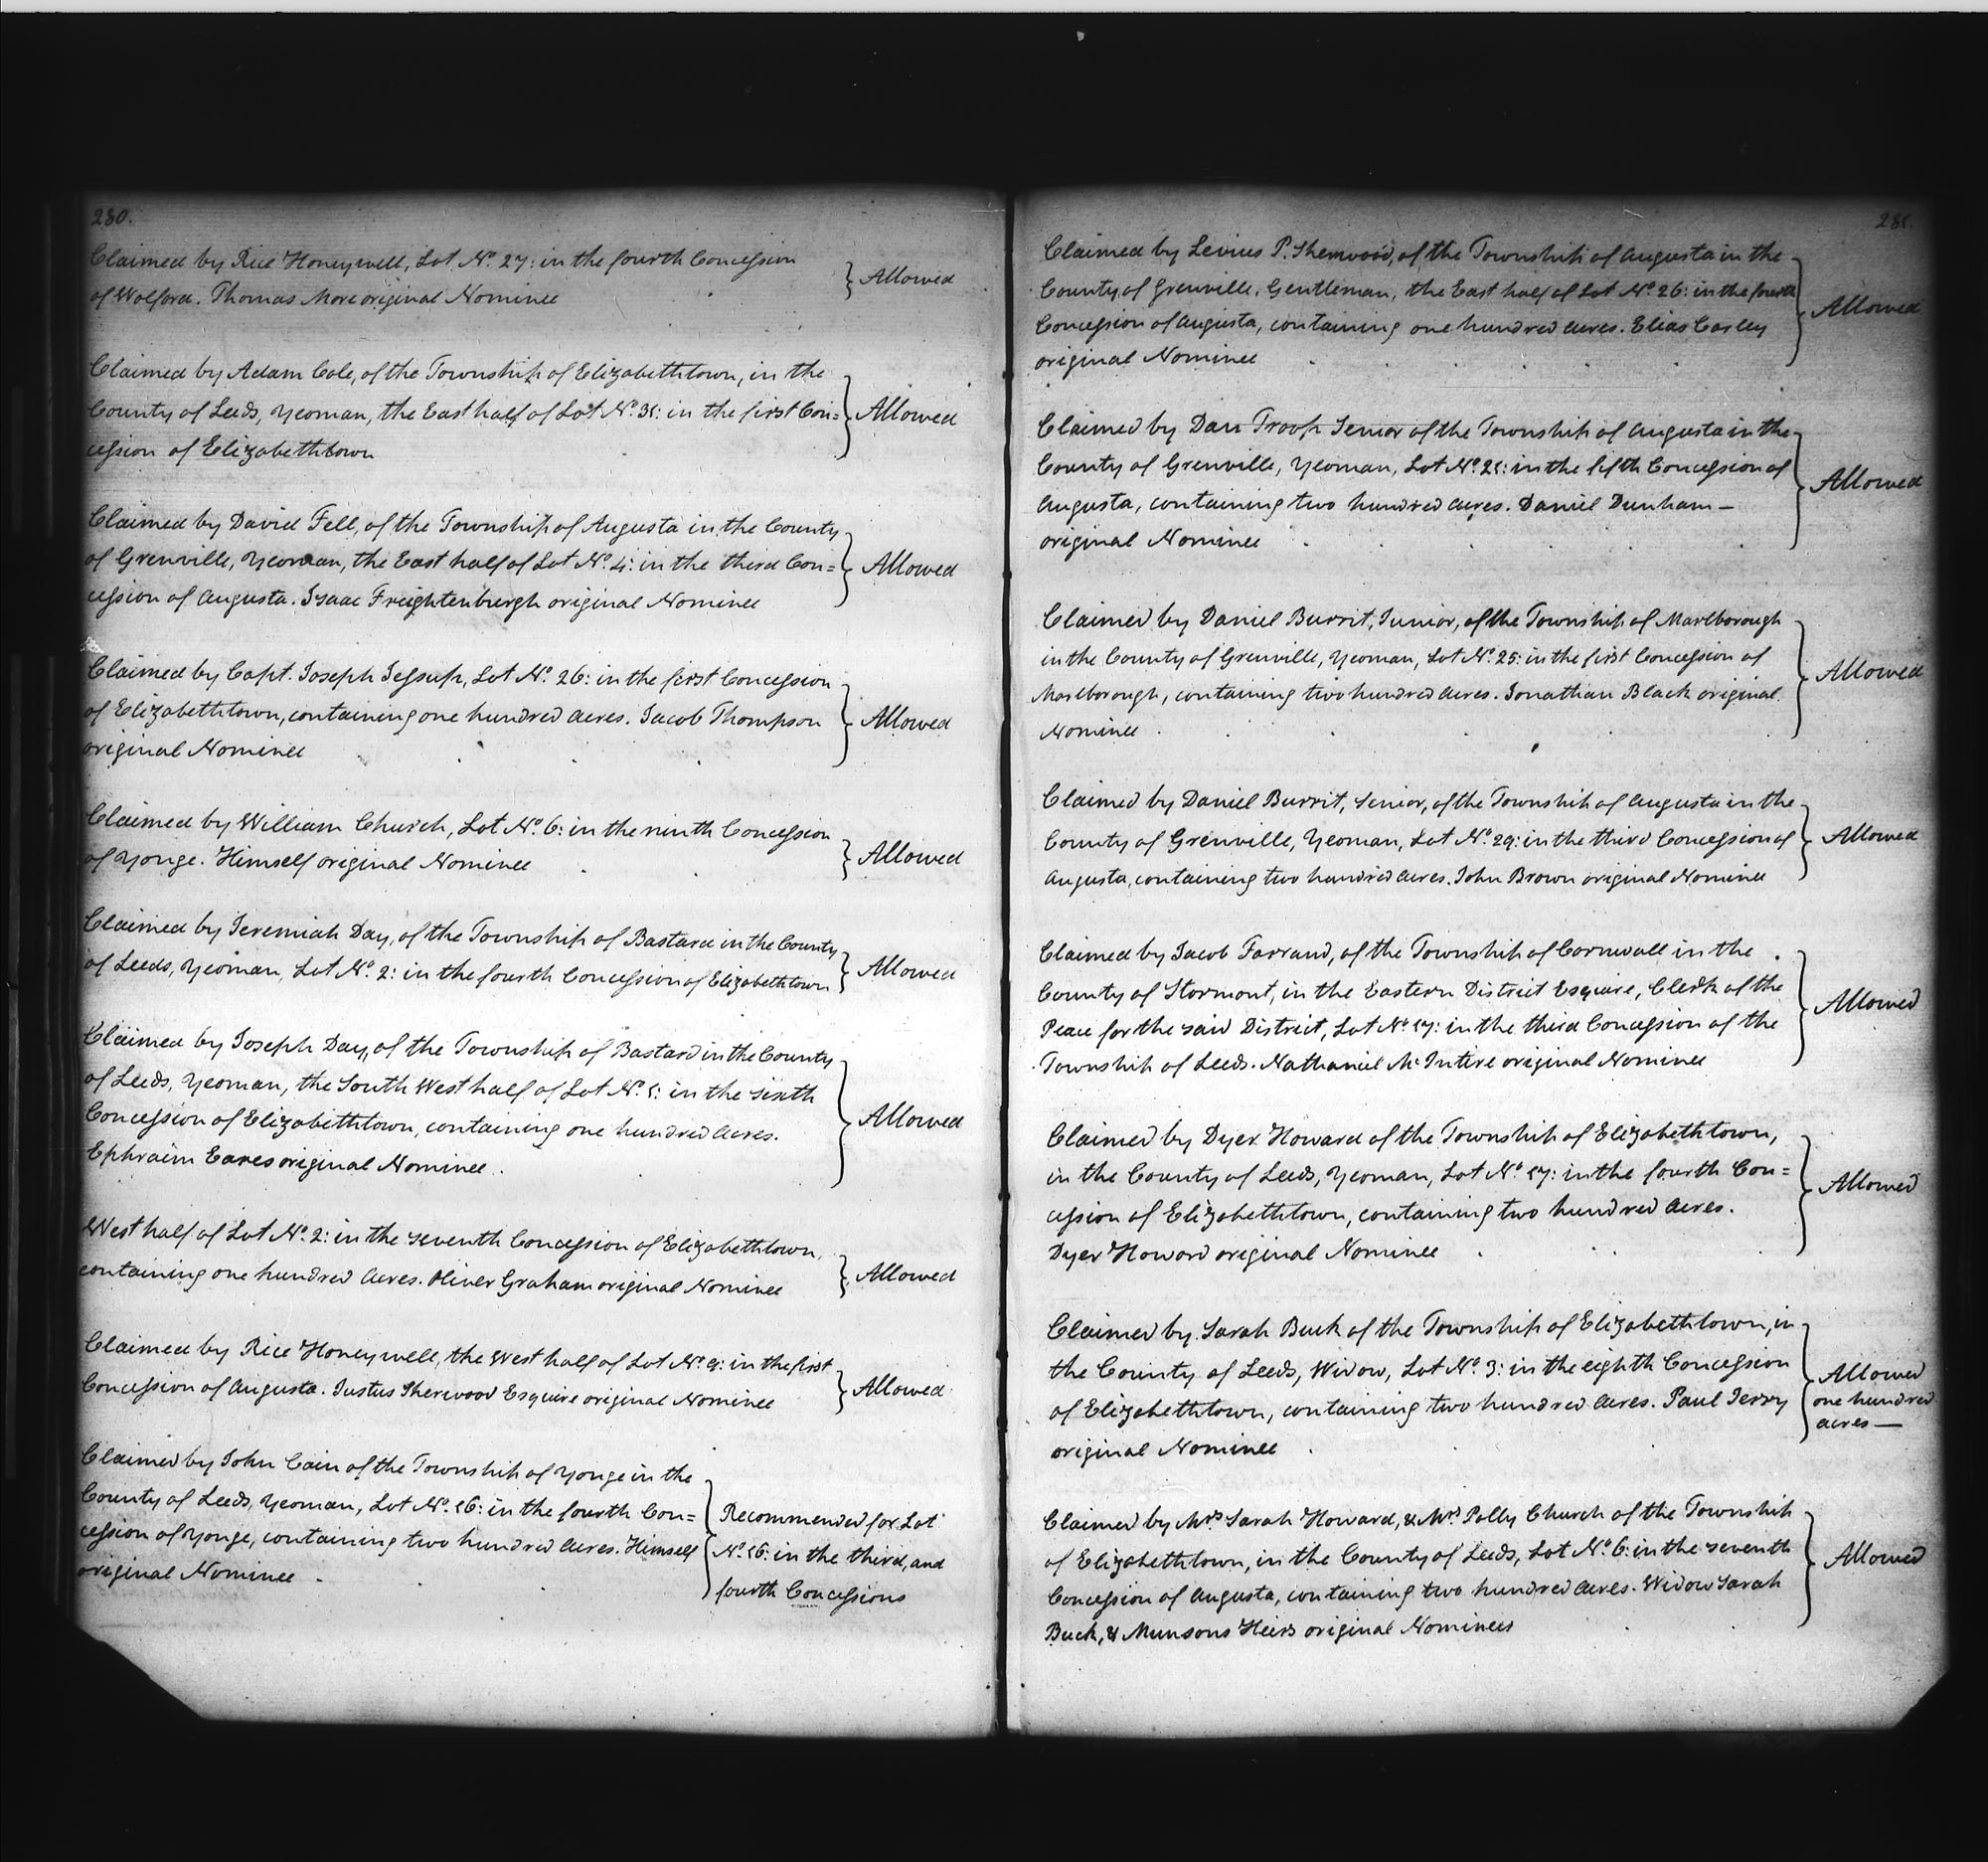 230.
Claimed by Rice Honeywell, Lot No. 27: in the fourth Concession
of Wolford. Thomas More original Nominee
} Allowed
Claimed by Adam Cole, of the Township of Elizabethtown, in the
County of Leeds, Yeoman, the East half of Lot No. 31: in the first Con=
cession of Elizabethtown
} Allowed
Claimed by David Fell, of the Township of Augusta in the County
of Grenville, Yeoman, the East half of Lot No. 4: in the third Con=
cession of Augusta. Isaac Freightenburgh original Nominee
} Allowed
Claimed by Capt. Joseph Jessup, Lot No. 26: in the first Concession
of Elizabethtown, containing one hundred Acres. Jacob Thompson
original Nominee
} Allowed
Claimed by William Church, Lot No. 6: in the ninth Concession
of Yonge. Himself original Nominee
} Allowed
Claimed by Jeremiah Day, of the Township of Bastard in the County
of Leeds, Yeoman, Lot No. 2: in the fourth Concession of Elizabethtown
} Allowed
Claimed by Joseph Day, of the Township of Bastard in the County
of Leeds, Yeoman, the South West half of Lot No. 1: in the sixth
Concession of Elizabethtown, containing one hundred Acres.
Ephraim Eares original Nominee.
} Allowed
West half of Lot No. 2: in the seventh Concession of Elizabethtown,
containing one hundred Acres. Oliver Graham original Nominee
} Allowed
Claimed by Rice Honeywell, the West half of Lot No. 9: in the first
Concession of Augusta. Justus Sherwood Esquire original Nominee
} Allowed
Claimed by John Cain of the Township of Yonge in the
County of Leeds, Yeoman, Lot No. 16: in the fourth Con=
cession of Yonge, containing two hundred Acres. Himself
original Nominee
Recommended for Lot
No. 16: in the third, and
fourth Concessions
231.
Claimed by Levius P. Sherwood, of the Township of Augusta in the
County of Grenville, Gentleman, the East half of Lot No. 26: in the fourth
Concession of Augusta, containing one hundred Acres. Elias Corley
original Nominee
} Allowed
Claimed by Dan Troop Senior of the Township of Augusta in the
County of Grenville, Yeoman, Lot No. 21: in the fifth Concession of
Augusta, containing two hundred Acres. Daniel Dunham—
original Nominee
} Allowed
Claimed by Daniel Burrit, Junior, of the Township of Marlborough
in the County of Grenville, Yeoman, Lot No. 25: in the first Concession of
Marlborough, containing two hundred Acres. Jonathan Black original
Nominee
} Allowed
Claimed by Daniel Burrit, Senior, of the Township of Augusta in the
County of Grenville, Yeoman, Lot No. 29: in the third Concession of
Augusta, containing two hundred Acres. John Brown original Nominee
} Allowed
Claimed by Jacob Farrand, of the Township of Cornwall in the
County of Stormont, in the Eastern District Esquire, Clerk of the
Peace for the said District, Lot No. 17: in the third Concession of the
Township of Leeds. Nathaniel McIntire original Nominee
} Allowed
Claimed by Dyer Howard of the Township of Elizabethtown,
in the County of Leeds, Yeoman, Lot No. 17: in the fourth Con=
cession of Elizabethtown, containing two hundred Acres.
Dyer Howard original Nominee
} Allowed
Claimed by Sarah Buck of the Township of Elizabethtown, in
the County of Leeds, Widow, Lot No. 3: in the eighth Concession
of Elizabethtown, containing two hundred Acres. Paul Jerry
original Nominee
} Allowed
one hundred
acres—
Claimed by Mrs. Sarah Howard, & Mrs. Polly Church of the Township
of Elizabethtown, in the County of Leeds, Lot No. 6: in the seventh
Concession of Augusta, containing two hundred Acres. Widow Sarah
Buck, & Munsons Heirs original Nominees
} Allowed